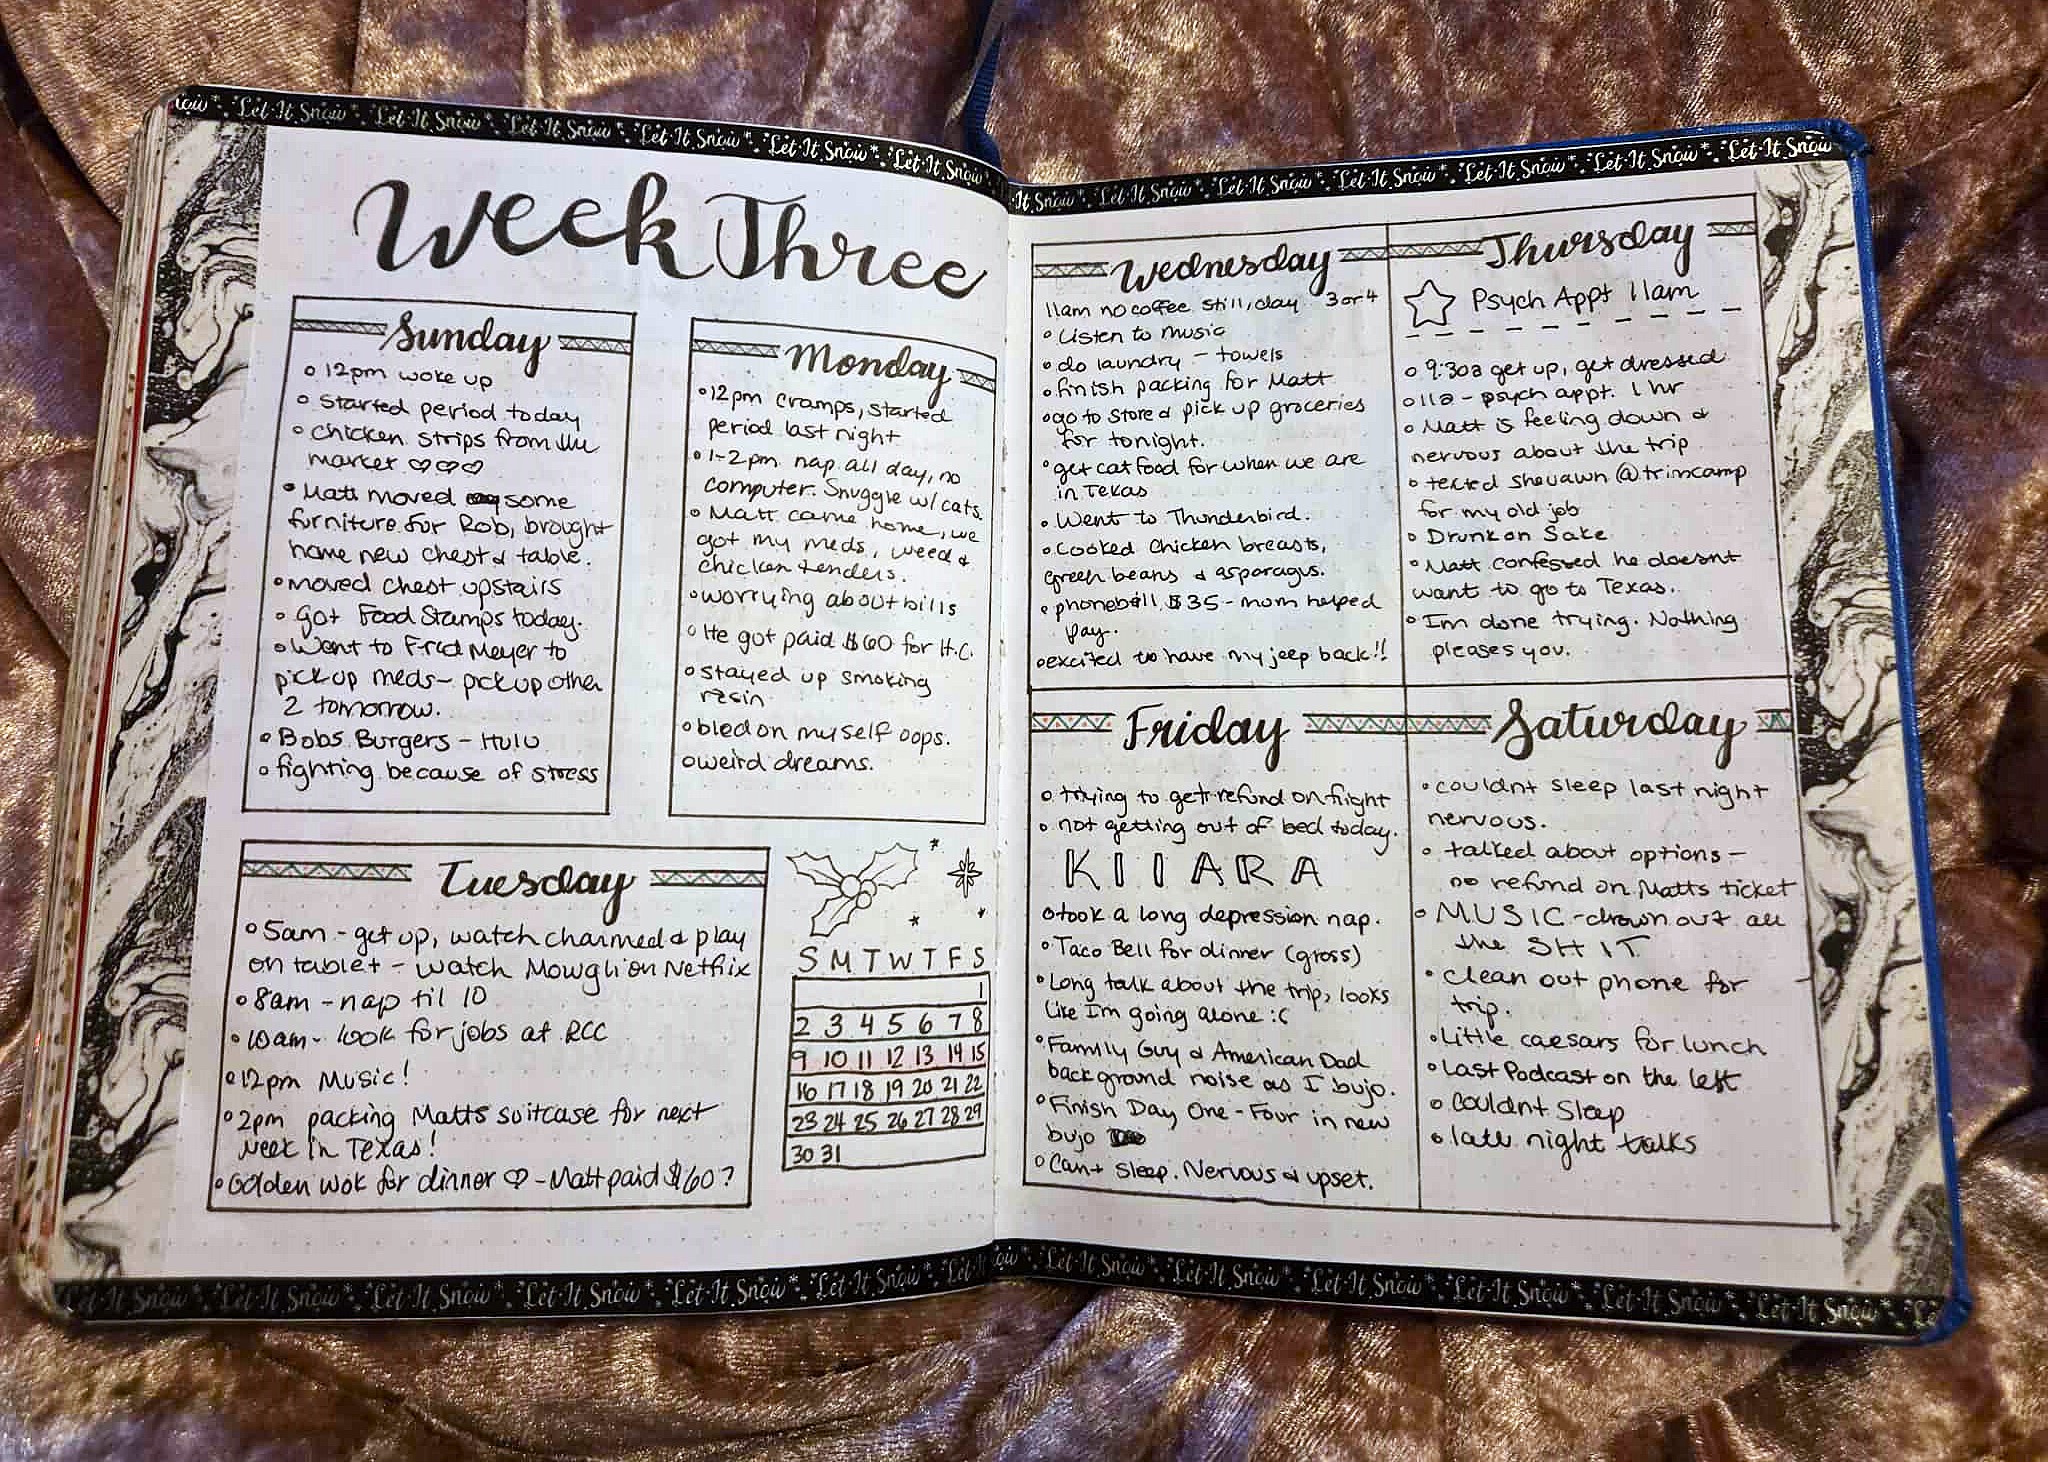 Let It Snow Let It Snow Let It Snow Let It Snow Let It Snow Let It Snow
It Snow Let It Snow Let It Snow Let It Snow Let It Snow Let It Snow Let It Snow
Week Three
Sunday
12pm woke up
Started period today
Chicken strips from the
market ♡♡♡
Matt moved some
furniture for Rob, brought
home new chest & table.
moved chest upstairs
Got Food Stamps today.
Went to Fred Meyer to
pick up meds - pick up other
2 tomorrow.
Bobs Burgers - Hulu
fighting because of stress
Monday
12pm cramps, started
period last night
1-2pm nap all day, no
computer. Snuggle w/ cats.
Matt came home, we
got my meds, weed &
chicken tenders.
worrying about bills
He got paid $60 for H.C.
stayed up smoking
resin
bled on myself oops.
weird dreams.
Tuesday
5am - get up, watch charmed & play
on tablet - watch Mowgli on Netflix
8am - nap til 10
10am - look for jobs at RCC
12pm Music!
2pm packing Matts suitcase for next
week in Texas!
Golden Wok for dinner ♡ - Matt paid $60?
S M T W T F S
1
2 3 4 5 6 7 8
9 10 11 12 13 14 15
16 17 18 19 20 21 22
23 24 25 26 27 28 29
30 31
Wednesday
11am no coffee still, day 3 or 4
Listen to music
do laundry - towels
finish packing for Matt
go to store & pick up groceries
for tonight.
get cat food for when we are
in Texas
Went to Thunderbird.
cooked chicken breasts,
green beans & asparagus.
phonebill $35 - mom helped
pay.
excited to have my jeep back!!
Thursday
Psych Appt 11am
9:30a get up, get dressed
11a - psych appt. 1 hr
Matt is feeling down &
nervous about the trip
texted shevawn @trimcamp
for my old job
Drunk on Sake
Matt confessed he doesnt
want to go to Texas.
Im done trying. Nothing
pleases you.
Friday
trying to get refund on flight
not getting out of bed today.
KIIARA
took a long depression nap.
Taco Bell for dinner (gross)
Long talk about the trip, looks
like Im going alone :(
Family Guy & American Dad
background noise as I bujo.
Finish Day One - Four in new
bujo
Cant sleep. Nervous & upset.
Saturday
couldnt sleep last night
nervous.
talked about options -
no refund on Matts ticket
MUSIC - drown out all
the SHIT
clean out phone for
trip.
Little caesars for lunch
Last Podcast on the left
Couldnt Sleep
late night talks
Let It Snow Let It Snow Let It Snow Let It Snow Let It Snow Let It Snow Let It
Let It Snow Let It Snow Let It Snow Let It Snow Let It Snow Let It Snow